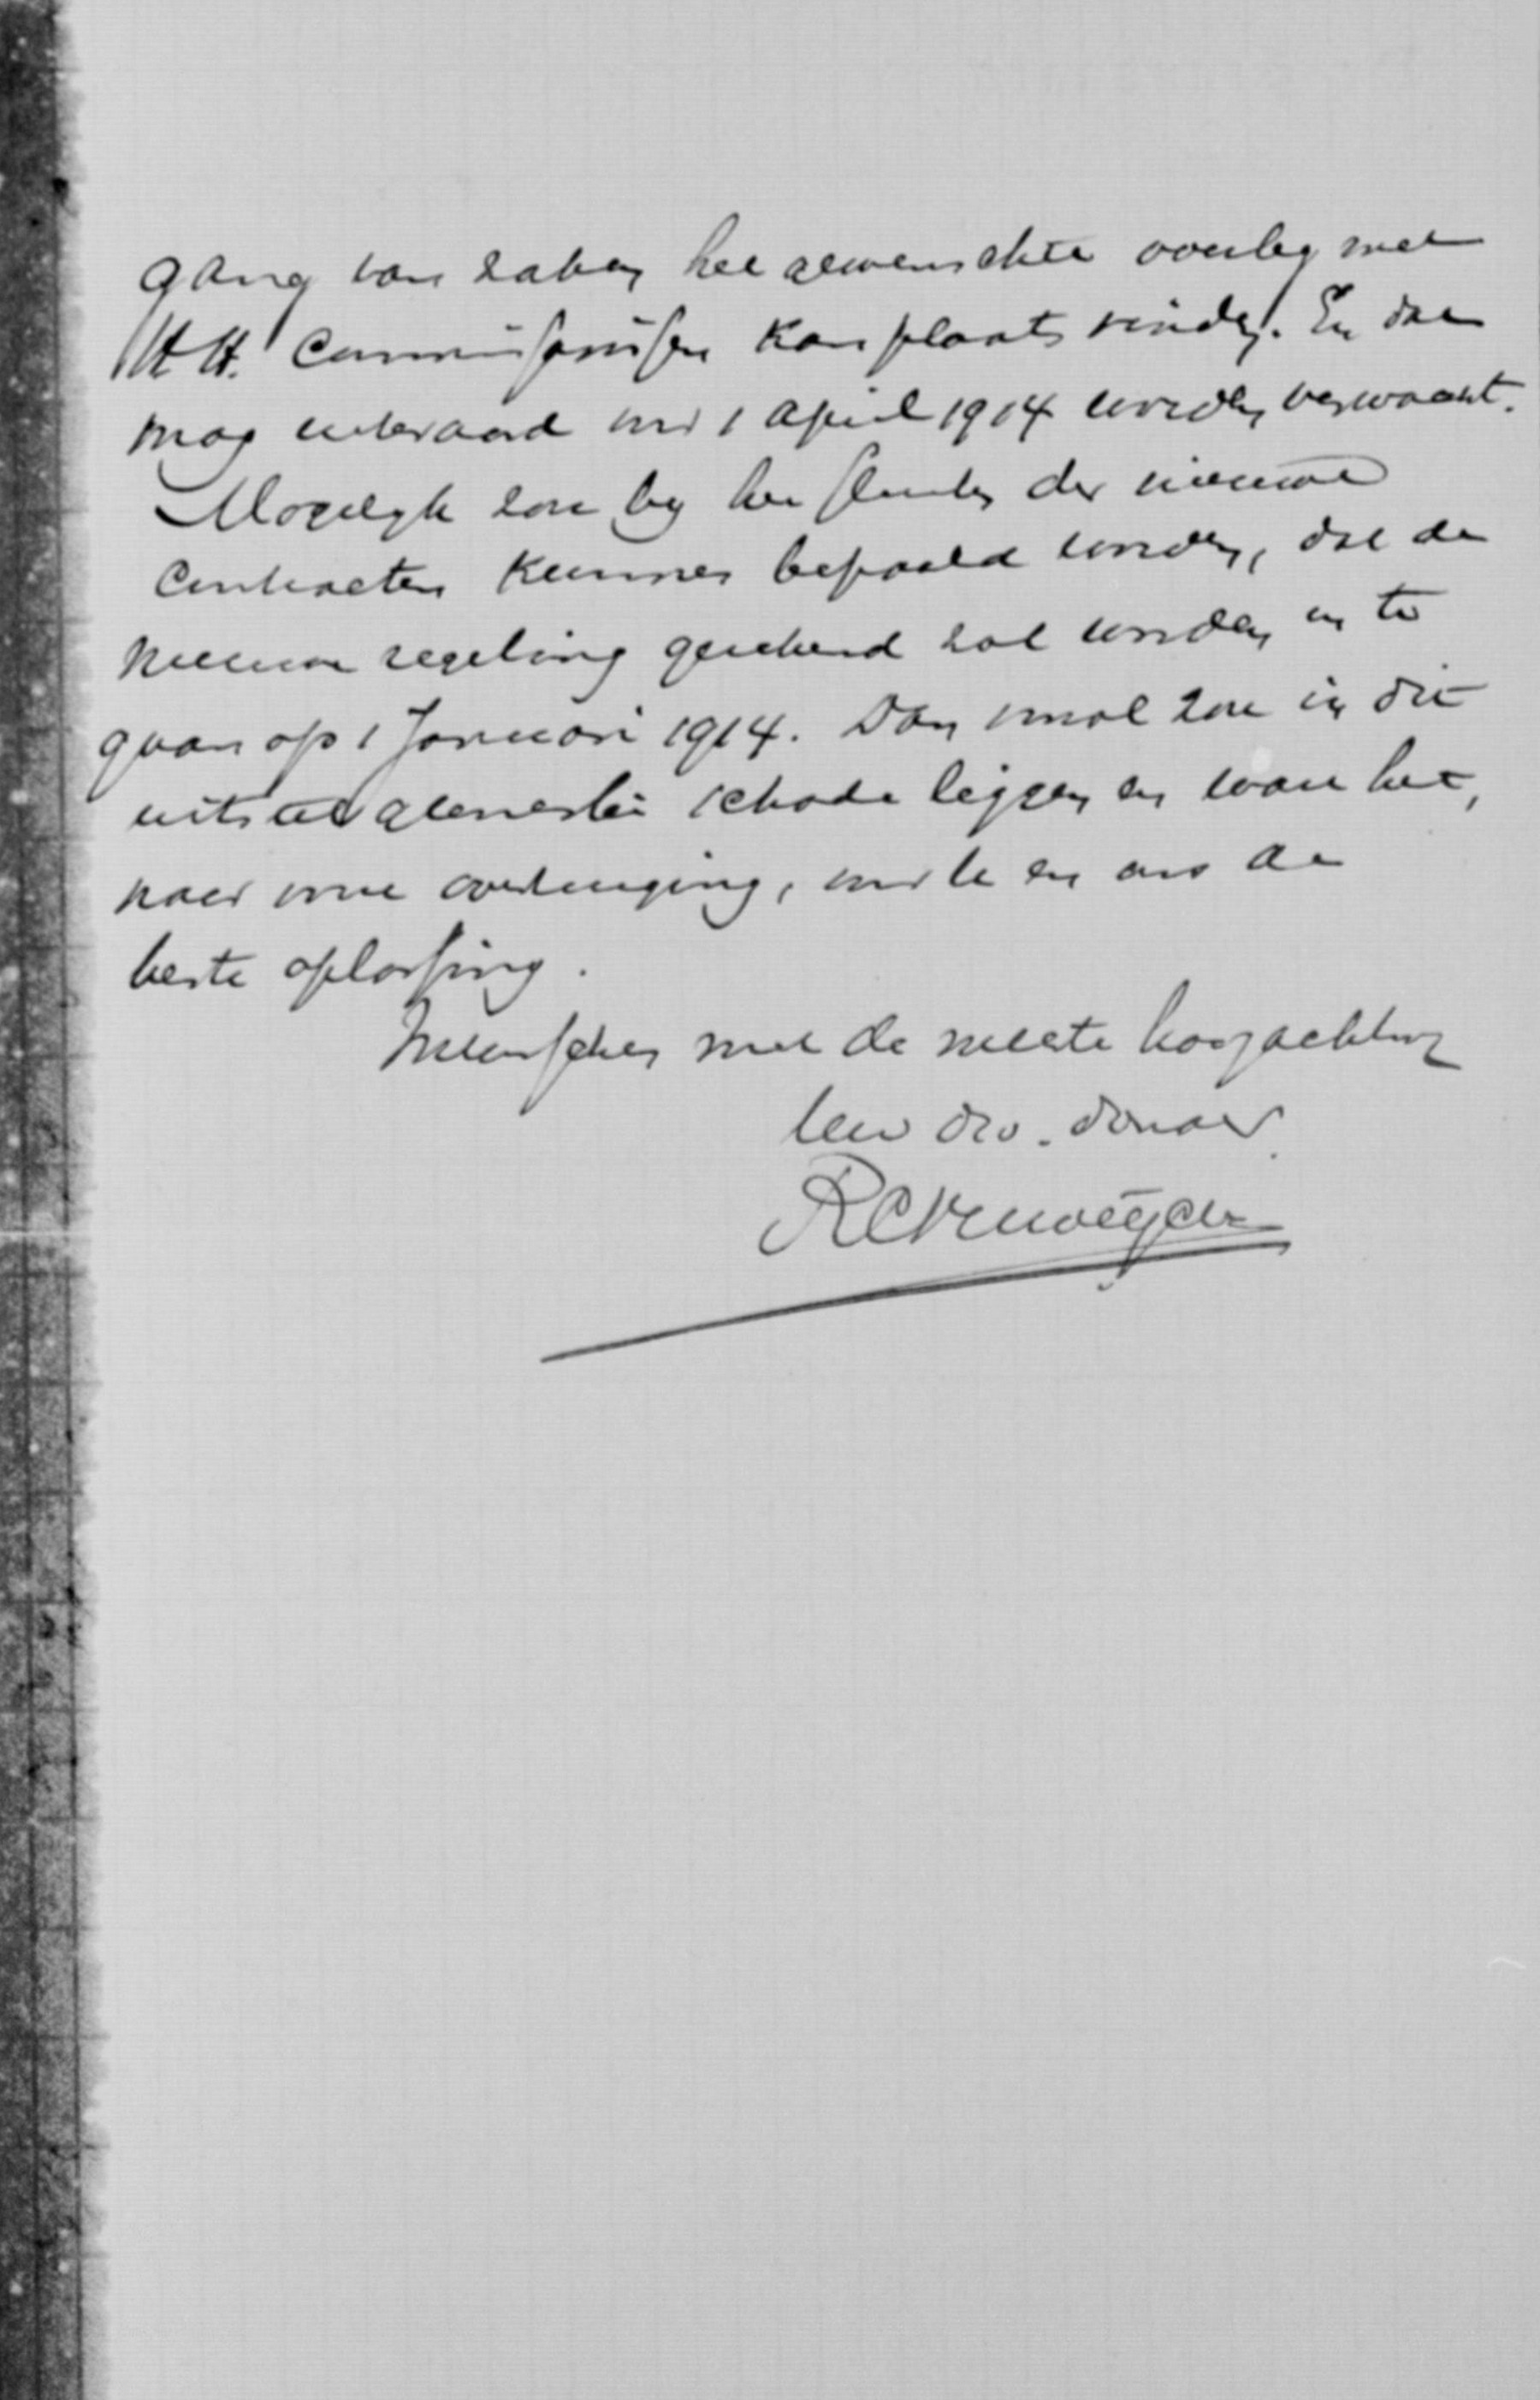 gang van zaken het gewenschte overleg met
H.H. Commissarissen kan plaats vinden. En dat
mag uiteraard vóór 1 April 1914 worden verwacht.
Mogelyk zou by het sluiten der nieuwe
Contracten kunnen bepaald worden, dat de
nieuwe regeling gerekend zal worden in te
gaan op 1 Januari 1914. Dan vooral zou in dit
uitstel generlei schade liggen en ware het,
naar onze overtuiging, de
beste oplossing.
Inmiddels met de meeste hoogachting
Uw dw. dienaar